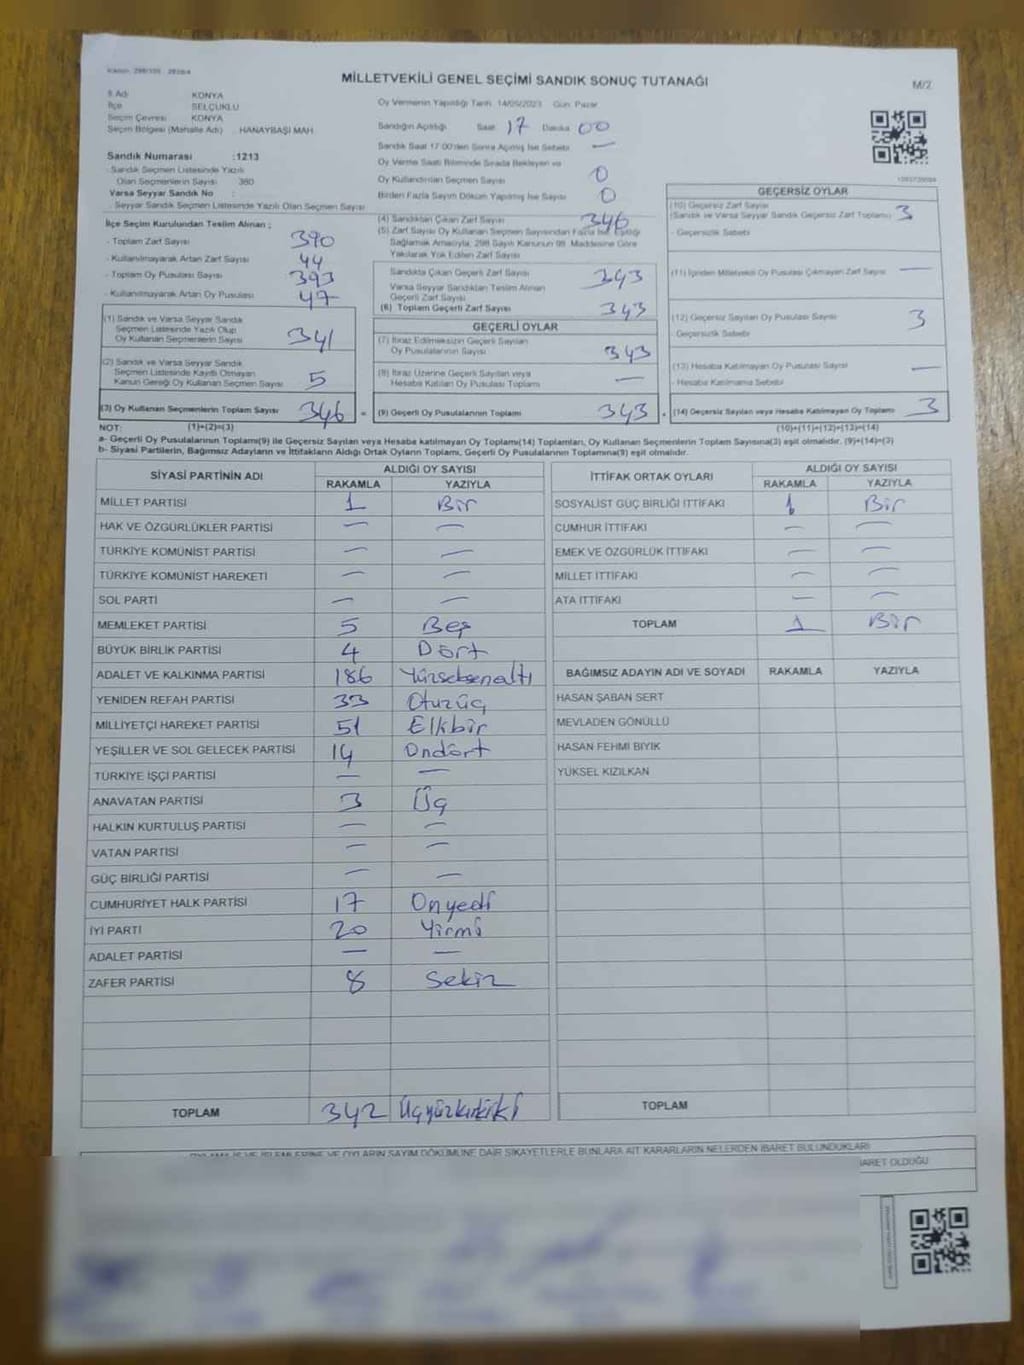 MİLLETVEKİLİ GENEL SEÇİMİ SANDIK SONUÇ TUTANAĞI
M/2
İl Adı KONYA
İlçe SELÇUKLU
Seçim Çevresi KONYA
Seçim Bölgesi (Mahalle Adı) : HANAYBAŞI MAH.
Sandık Numarası :1213
Sandık Seçmen Listesinde Yazılı
Olan Seçmenlerin Sayısı 360
Varsa Seyyar Sandık No :
Seyyar Sandık Seçmen Listesinde Yazılı Olan Seçmen Sayısı
Oy Vermenin Yapıldığı Tarih 14/05/2023 Gün: Pazar
Sandığın Açıldığı Saat 17 Dakika 00
Sandık Saat 17:00'den Sonra Açılmış İse Sebebi —
Oy Verme Saati Bitiminde Sırada Bekleyen ve
Oy Kullandırılan Seçmen Sayısı 0
Birden Fazla Sayım Döküm Yapılmış İse Sayısı 0
İlçe Seçim Kurulundan Teslim Alınan ;
- Toplam Zarf Sayısı 390
- Kullanılmayarak Artan Zarf Sayısı 44
- Toplam Oy Pusulası Sayısı 393
- Kullanılmayarak Artan Oy Pusulası 47
(1) Sandık ve Varsa Seyyar Sandık
Seçmen Listesinde Yazılı Olup
Oy Kullanan Seçmenlerin Sayısı 341
(2) Sandık ve Varsa Seyyar Sandık
Seçmen Listesinde Kayıtlı Olmayan
Kanun Gereği Oy Kullanan Seçmen Sayısı 5
(3) Oy Kullanan Seçmenlerin Toplam Sayısı 346 =
(4) Sandıktan Çıkan Zarf Sayısı 346
(5) Zarf Sayısı Oy Kullanan Seçmen Sayısından Fazla İse, Eşitliği
Sağlamak Amacıyla, 298 Sayılı Kanunun 98. Maddesine Göre
Yakılarak Yok Edilen Zarf Sayısı
Sandıkta Çıkan Geçerli Zarf Sayısı 343
Varsa Seyyar Sandıktan Teslim Alınan
Geçerli Zarf Sayısı
(6) Toplam Geçerli Zarf Sayısı 343
GEÇERLİ OYLAR
(7) İtiraz Edilmeksizin Geçerli Sayılan
Oy Pusulalarının Sayısı 343
(8) İtiraz Üzerine Geçerli Sayılan veya
Hesaba Katılan Oy Pusulası Toplamı —
(9) Geçerli Oy Pusulalarının Toplamı 343
GEÇERSİZ OYLAR
(10) Geçersiz Zarf Sayısı 3
(Sandık ve Varsa Seyyar Sandık Geçersiz Zarf Toplamı)
- Geçersizlik Sebebi
(11) İçinden Milletvekili Oy Pusulası Çıkmayan Zarf Sayısı —
(12) Geçersiz Sayılan Oy Pusulası Sayısı 3
- Geçersizlik Sebebi
(13) Hesaba Katılmayan Oy Pusulası Sayısı —
- Hesaba Katılmama Sebebi
(14) Geçersiz Sayılan veya Hesaba Katılmayan Oy Toplamı 3
NOT: (1)+(2)=(3) (10)+(11)+(12)+(13)=(14)
a- Geçerli Oy Pusulalarının Toplamı(9) ile Geçersiz Sayılan veya Hesaba katılmayan Oy Toplamı(14) Toplamları, Oy Kullanan Seçmenlerin Toplam Sayısına(3) eşit olmalıdır. (9)+(14)=(3)
b- Siyasi Partilerin, Bağımsız Adayların ve İttifakların Aldığı Ortak Oyların Toplamı, Geçerli Oy Pusulalarının Toplamına(9) eşit olmalıdır.
SİYASİ PARTİNİN ADI ALDIĞI OY SAYISI
RAKAMLA YAZIYLA
MİLLET PARTİSİ 1 Bir
HAK VE ÖZGÜRLÜKLER PARTİSİ — —
TÜRKİYE KOMÜNİST PARTİSİ — —
TÜRKİYE KOMÜNİST HAREKETİ — —
SOL PARTİ — —
MEMLEKET PARTİSİ 5 Beş
BÜYÜK BİRLİK PARTİSİ 4 Dört
ADALET VE KALKINMA PARTİSİ 186 Yüzseksenaltı
YENİDEN REFAH PARTİSİ 33 Otuzüç
MİLLİYETÇİ HAREKET PARTİSİ 51 Ellibir
YEŞİLLER VE SOL GELECEK PARTİSİ 14 Ondört
TÜRKİYE İŞÇİ PARTİSİ — —
ANAVATAN PARTİSİ 3 Üç
HALKIN KURTULUŞ PARTİSİ — —
VATAN PARTİSİ — —
GÜÇ BİRLİĞİ PARTİSİ — —
CUMHURİYET HALK PARTİSİ 17 Onyedi
İYİ PARTİ 20 Yirmi
ADALET PARTİSİ — —
ZAFER PARTİSİ 8 Sekiz
TOPLAM 342 Üçyüzkırkiki
İTTİFAK ORTAK OYLARI ALDIĞI OY SAYISI
RAKAMLA YAZIYLA
SOSYALİST GÜÇ BİRLİĞİ İTTİFAKI 1 Bir
CUMHUR İTTİFAKI — —
EMEK VE ÖZGÜRLÜK İTTİFAKI — —
MİLLET İTTİFAKI — —
ATA İTTİFAKI — —
TOPLAM 1 Bir
BAĞIMSIZ ADAYIN ADI VE SOYADI RAKAMLA YAZIYLA
HASAN ŞABAN SERT
MEVLADEN GÖNÜLLÜ
HASAN FEHMİ BIYIK
YÜKSEL KIZILKAN
TOPLAM
OYLAMA İŞ VE İŞLEMLERİNE VE OYLARIN SAYIM DÖKÜMÜNE DAİR ŞİKAYETLERLE BUNLARA AİT KARARLARIN NELERDEN İBARET BULUNDUKLARI
İBARET OLDUĞU